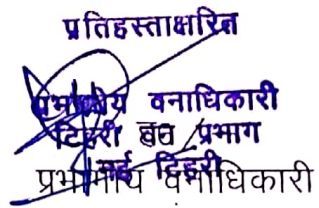 प्रतिहस्ताक्षरित
प्रभागीय वनाधिकारी
टिहरी वन प्रभाग
नई टिहरी
प्रभागीय वनाधिकारी